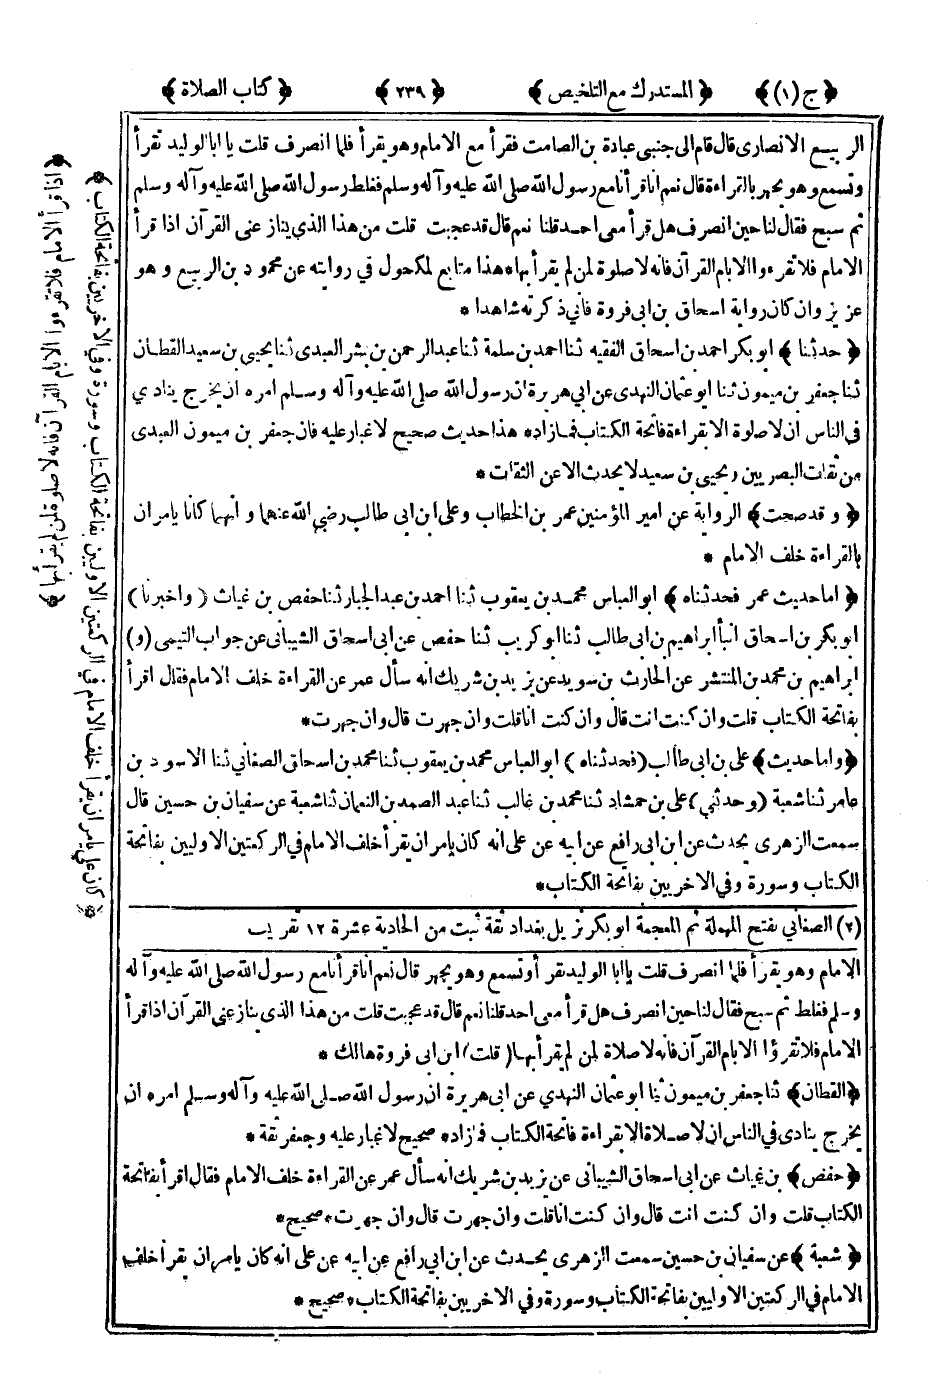 ﴿ ج (١) ﴾ ﴿ المستدرك مع التلخيص ﴾ ﴿ ٢٣٩ ﴾ ﴿ كتاب الصلاة ﴾
الربيع الانصارى قال قام الى جنبى عبادة بن الصامت فقرأ مع الامام وهو يقرأ فلما انصرف قلت يا ابا الوليد تقرأ
وتسمع وهو يجهر بالقراءة قال نعم انا قرأنا مع رسول الله صلى الله عليه وآله وسلم فغلط رسول الله صلى الله عليه وآله وسلم
ثم سبح فقال لنا حين انصرف هل قرأ معى احد قلنا نعم قال قد عجبت قلت من هذا الذى ينازعنى القرآن اذا قرأ
الامام فلا تقرءوا الا بام القرآن فانه لا صلوة لمن لم يقرأ بها* هذا متابع لمكحول في روايته عن محمود بن الربيع و هو
عزيز وان كان رواية اسحاق بن ابى فروة فانى ذكرته شاهدا *
﴿ حدثنا ﴾ ابو بكر احمد بن اسحاق الفقيه ثنا احمد بن سلمة ثنا عبد الرحمن بن بشر العبدى ثنا يحيى بن سعيد القطان
ثنا جعفر بن ميمون ثنا ابو عثمان النهدى عن ابى هريرة ان رسول الله صلى الله عليه وآله وسلم امره ان يخرج ينادي
فى الناس ان لا صلوة الا بقراءة فاتحة الكتاب فما زاد* هذا حديث صحيح لا غبار عليه فان جعفر بن ميمون العبدى
من ثقات البصريين ويحيى بن سعيد لا يحدث الا عن الثقات *
﴿ و قد صحت ﴾ الرواية عن امير المؤمنين عمر بن الخطاب وعلى ابن ابى طالب رضى الله عنهما و انهما كانا يامران
بالقراءة خلف الامام *
﴿ اما حديث عمر فحدثناه ﴾ ابو العباس محمد بن يعقوب ثنا احمد بن عبد الجبار ثنا حفص بن غياث ( واخبرنا )
ابو بكر بن اسحاق انبأ ابراهيم بن ابى طالب ثنا ابو كريب ثنا حفص عن ابى اسحاق الشيبانى عن جواب التيمى (و)
ابراهيم بن محمد بن المنتشر عن الحارث بن سويد عن يزيد بن شريك انه سأل عمر عن القراءة خلف الامام فقال اقرأ
بفاتحة الكتاب قلت وان كنت انت قال وان كنت انا قلت وان جهرت قال وان جهرت*
﴿ واما حديث ﴾ على بن ابى طالب ( فحدثناه ) ابو العباس محمد بن يعقوب ثنا محمد بن اسحاق الصغانى ثنا الاسود بن
عامر ثنا شعبة ( وحدثنى ) على بن حمشاد ثنا محمد بن غالب ثنا عبد الصمد بن النعمان ثنا شعبة عن سفيان بن حسين قال
سمعت الزهرى يحدث عن ابن ابى رافع عن ابيه عن على انه كان يامر ان يقرأ خلف الامام فى الركعتين الاوليين بفاتحة
الكتاب وسورة وفى الاخريين بفاتحة الكتاب*
(٢) الصغانى بفتح المهملة ثم المعجمة ابو بكر نزيل بغداد ثقة ثبت من الحادية عشرة ١٢ تقريب
الامام وهو يقرأ فلما انصرف قلت يا ابا الوليد تقرأ وتسمع وهو يجهر قال نعم انا قرأنا مع رسول الله صلى الله عليه وآله
وسلم فغلط ثم سبح فقال لنا حين انصرف هل قرأ معى احد قلنا نعم قال قد عجبت قلت من هذا الذى ينازعنى القرآن اذا قرأ
الامام فلا تقرؤا الا بام القرآن فانه لا صلاة لمن لم يقرأ بها ( قلت ) ابن ابى فروة هالك *
﴿ القطان ﴾ ثنا جعفر بن ميمون ثنا ابو عثمان النهدي عن ابى هريرة ان رسول الله صلى الله عليه وآله وسلم امره ان
يخرج ينادى فى الناس ان لا صلاة الا بقراءة فاتحة الكتاب فما زاد* صحيح لا غبار عليه وجعفر ثقة *
﴿ حفص ﴾ بن غياث عن ابى اسحاق الشيبانى عن يزيد بن شريك انه سأل عمر عن القراءة خلف الامام فقال اقرأ بفاتحة
الكتاب قلت وان كنت انت قال وان كنت انا قلت وان جهرت قال وان جهرت* صحيح*
﴿ شعبة ﴾ عن سفيان بن حسين سمعت الزهرى يحدث عن ابن ابى رافع عن ابيه عن على انه كان يامر ان يقرأ خلف
الامام فى الركعتين الاوليين بفاتحة الكتاب وسورة وفى الاخريين بفاتحة الكتاب* صحيح *
﴿ كان على يامر ان يقرأ خلف الامام في الركعتين الاوليين بفاتحة الكتاب وسورة وفى الاخريين بفاتحة الكتاب ﴾
﴿ اذا قرأ الامام فلا تقرءوا الا بام القرآن فانه لا صلوة لمن لم يقرأ بها ﴾